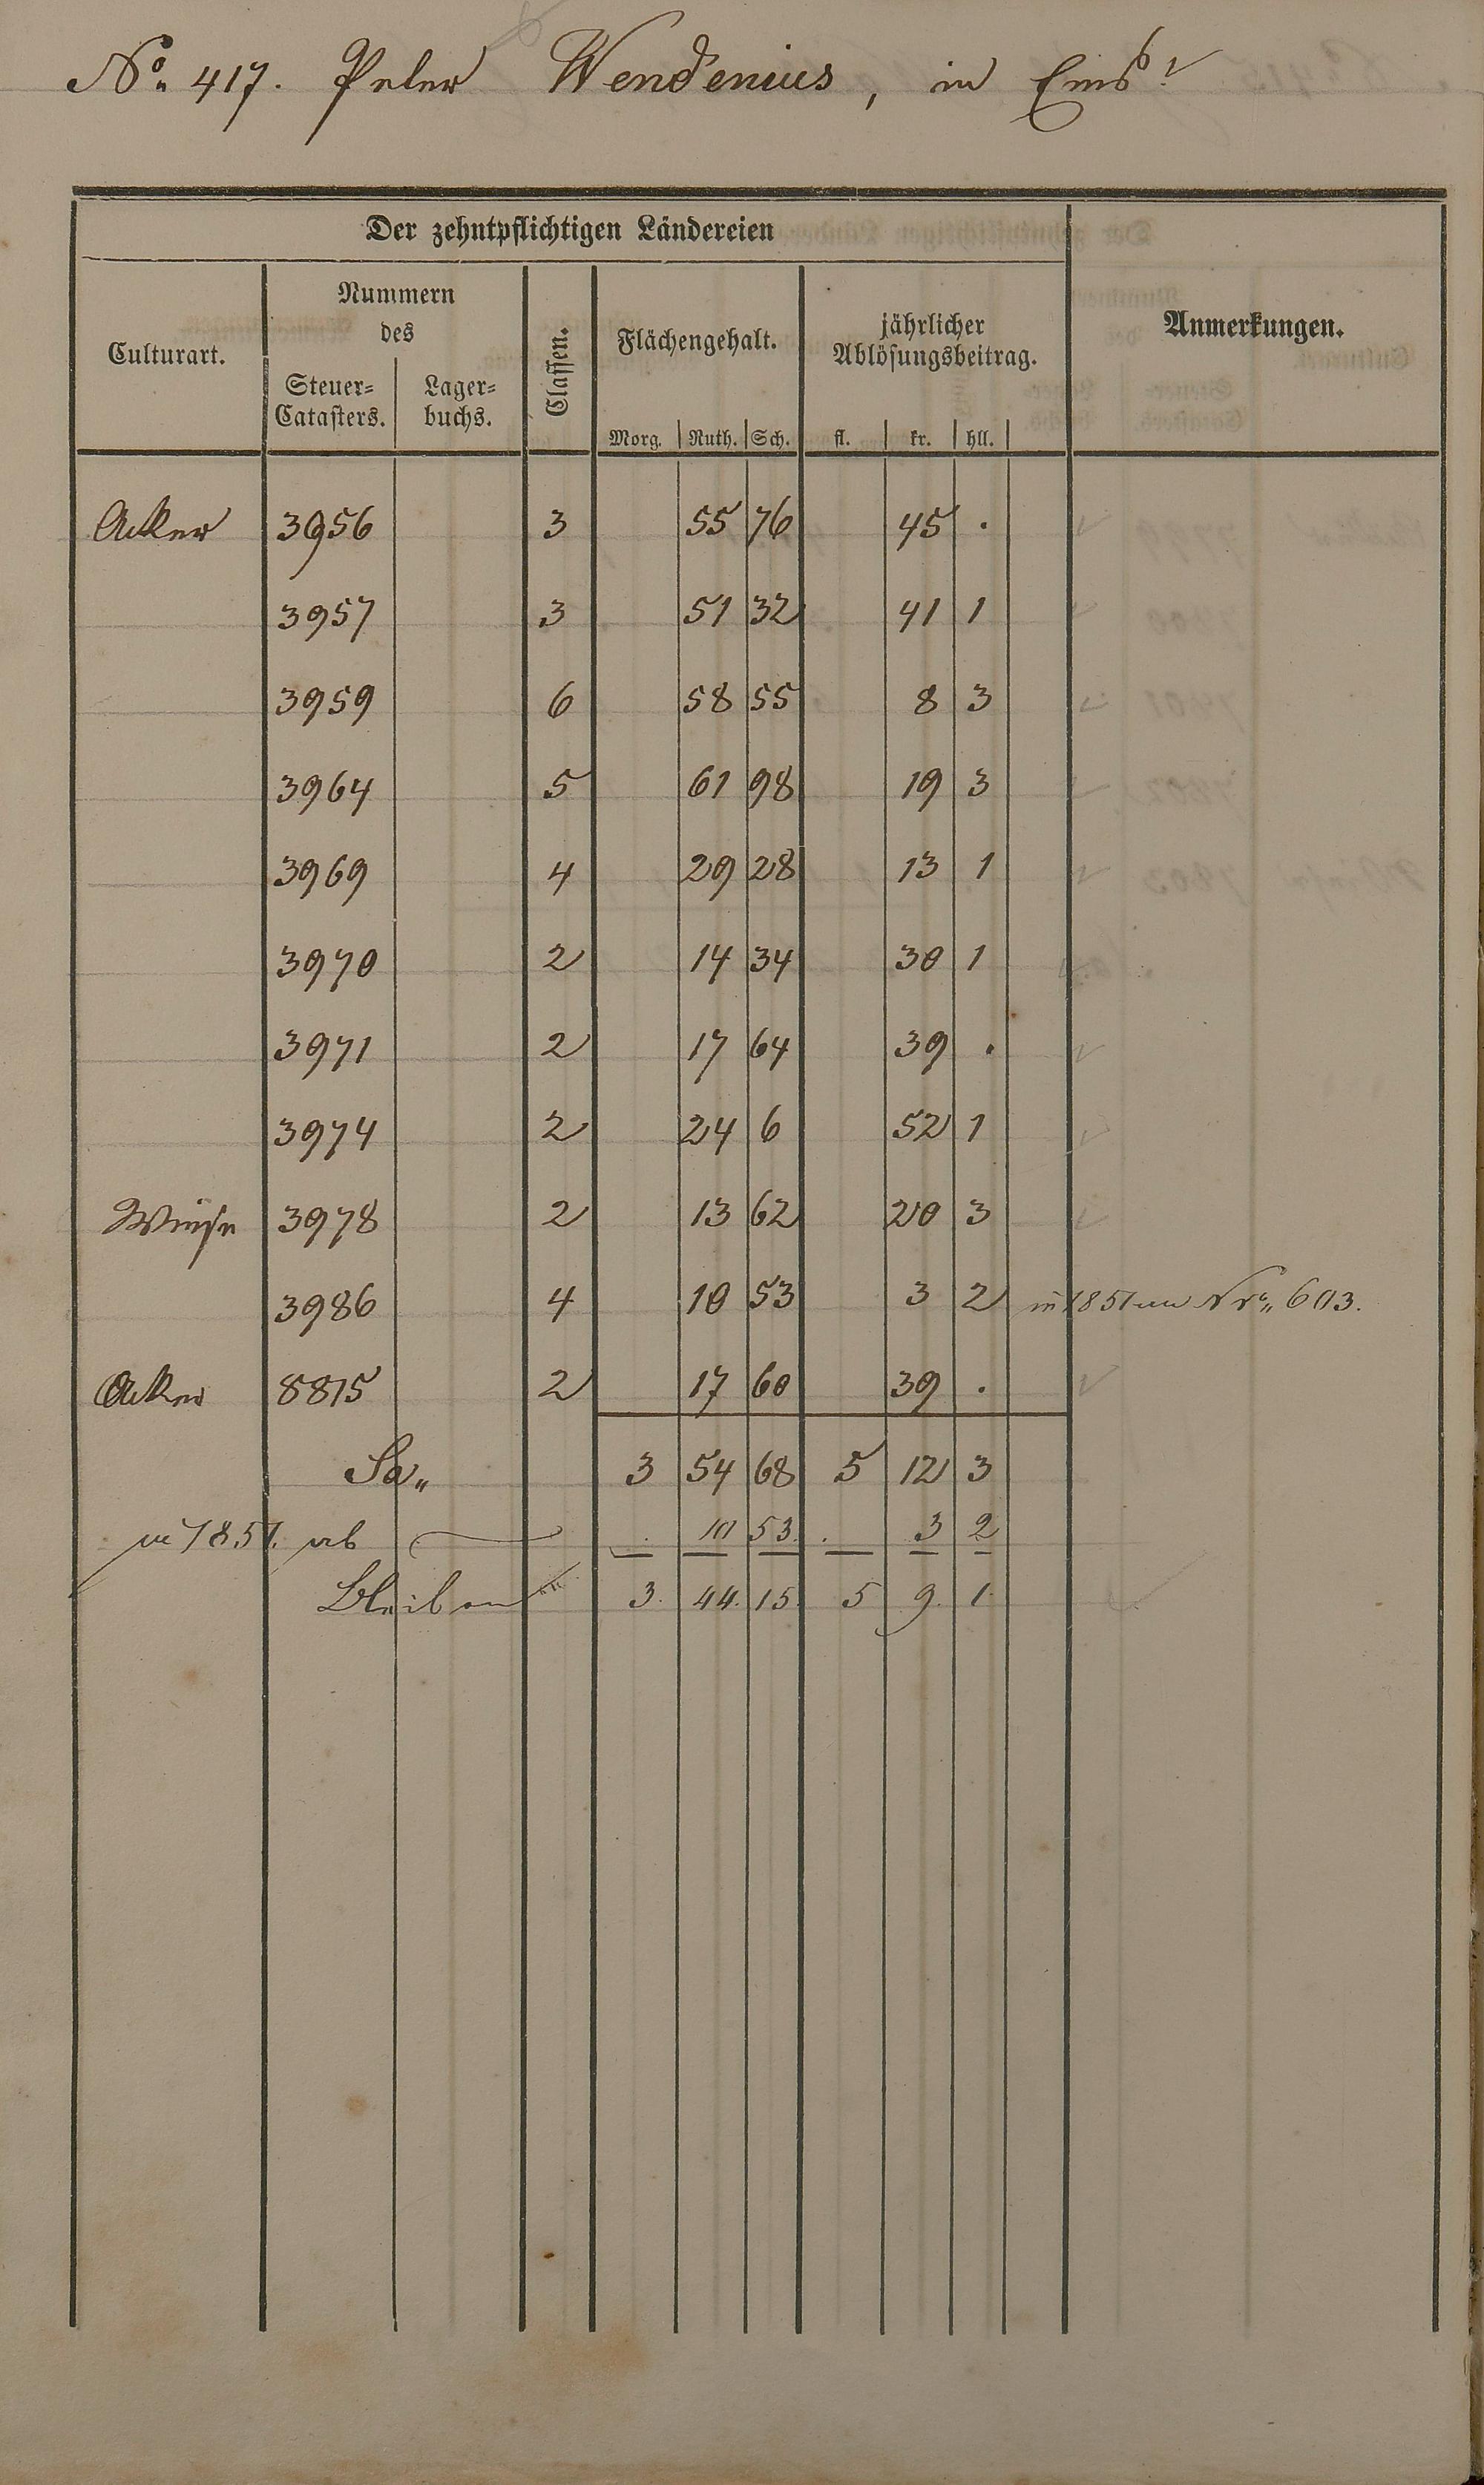 No. 417. Peter Wendenius, in Ems
Der zehntpflichtigen Ländereien
Culturart.
Nummern
des
Steuer-
Catasters.
Lager-
buchs.
Classen.
Flächengehalt.
Morg. Ruth. Sch.
jährlicher
Ablösungsbeitrag.
fl. kr. hll.
Anmerkungen.
Acker 3956 3 55 76 45 .
3957 3 51 32 41 1
3959 6 58 55 8 3
3964 5 61 98 19 3
3969 4 29 28 13 1
3970 2 14 34 30 1
3971 2 17 64 39 .
3974 2 24 6 52 1
Wiese 3978 2 13 62 20 3
3986 4 10 53 3 2 in 1851 an Nro. 603.
Acker 8815 2 17 60 39 .
Sa. 3 54 68 5 12 3
in 1851. ab . 10 53 . 3 2
Bleiben 3. 44. 15. 5 9. 1.